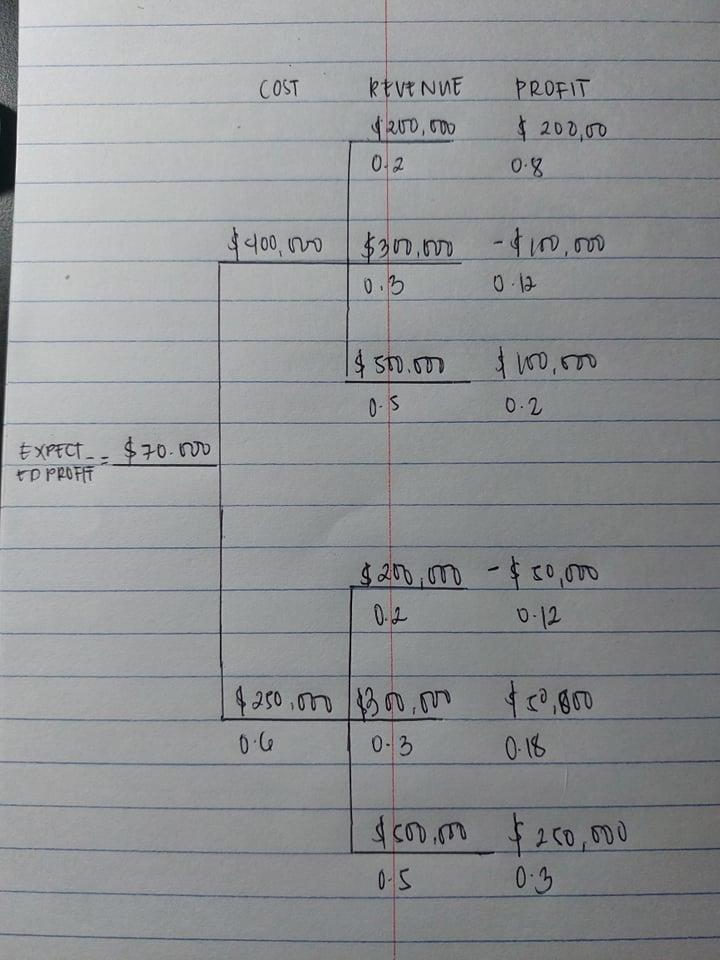 COST REVENUE PROFIT
$200,000 $ 200,00
0.2 0.8
$400,000 $300,000 -$100,000
0.3 0.12
$500.000 $100,000
0.5 0.2
EXPECT_ = $70.000
ED PROFIT
$200,000 -$50,000
0.2 0.12
$250,000 $300,000 $50,000
0.6 0.3 0.18
$500,000 $250,000
0.5 0.3